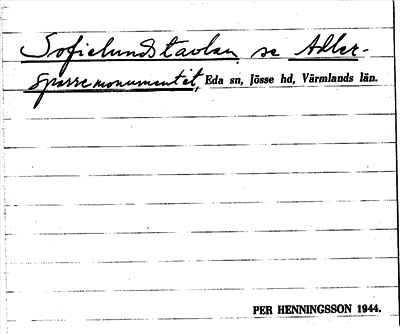 Sofielundstavlan, se Adler-
sparremonumentet, Eda sn, Jösse hd, Värmlands län.
PER HENNINGSSON 1944.